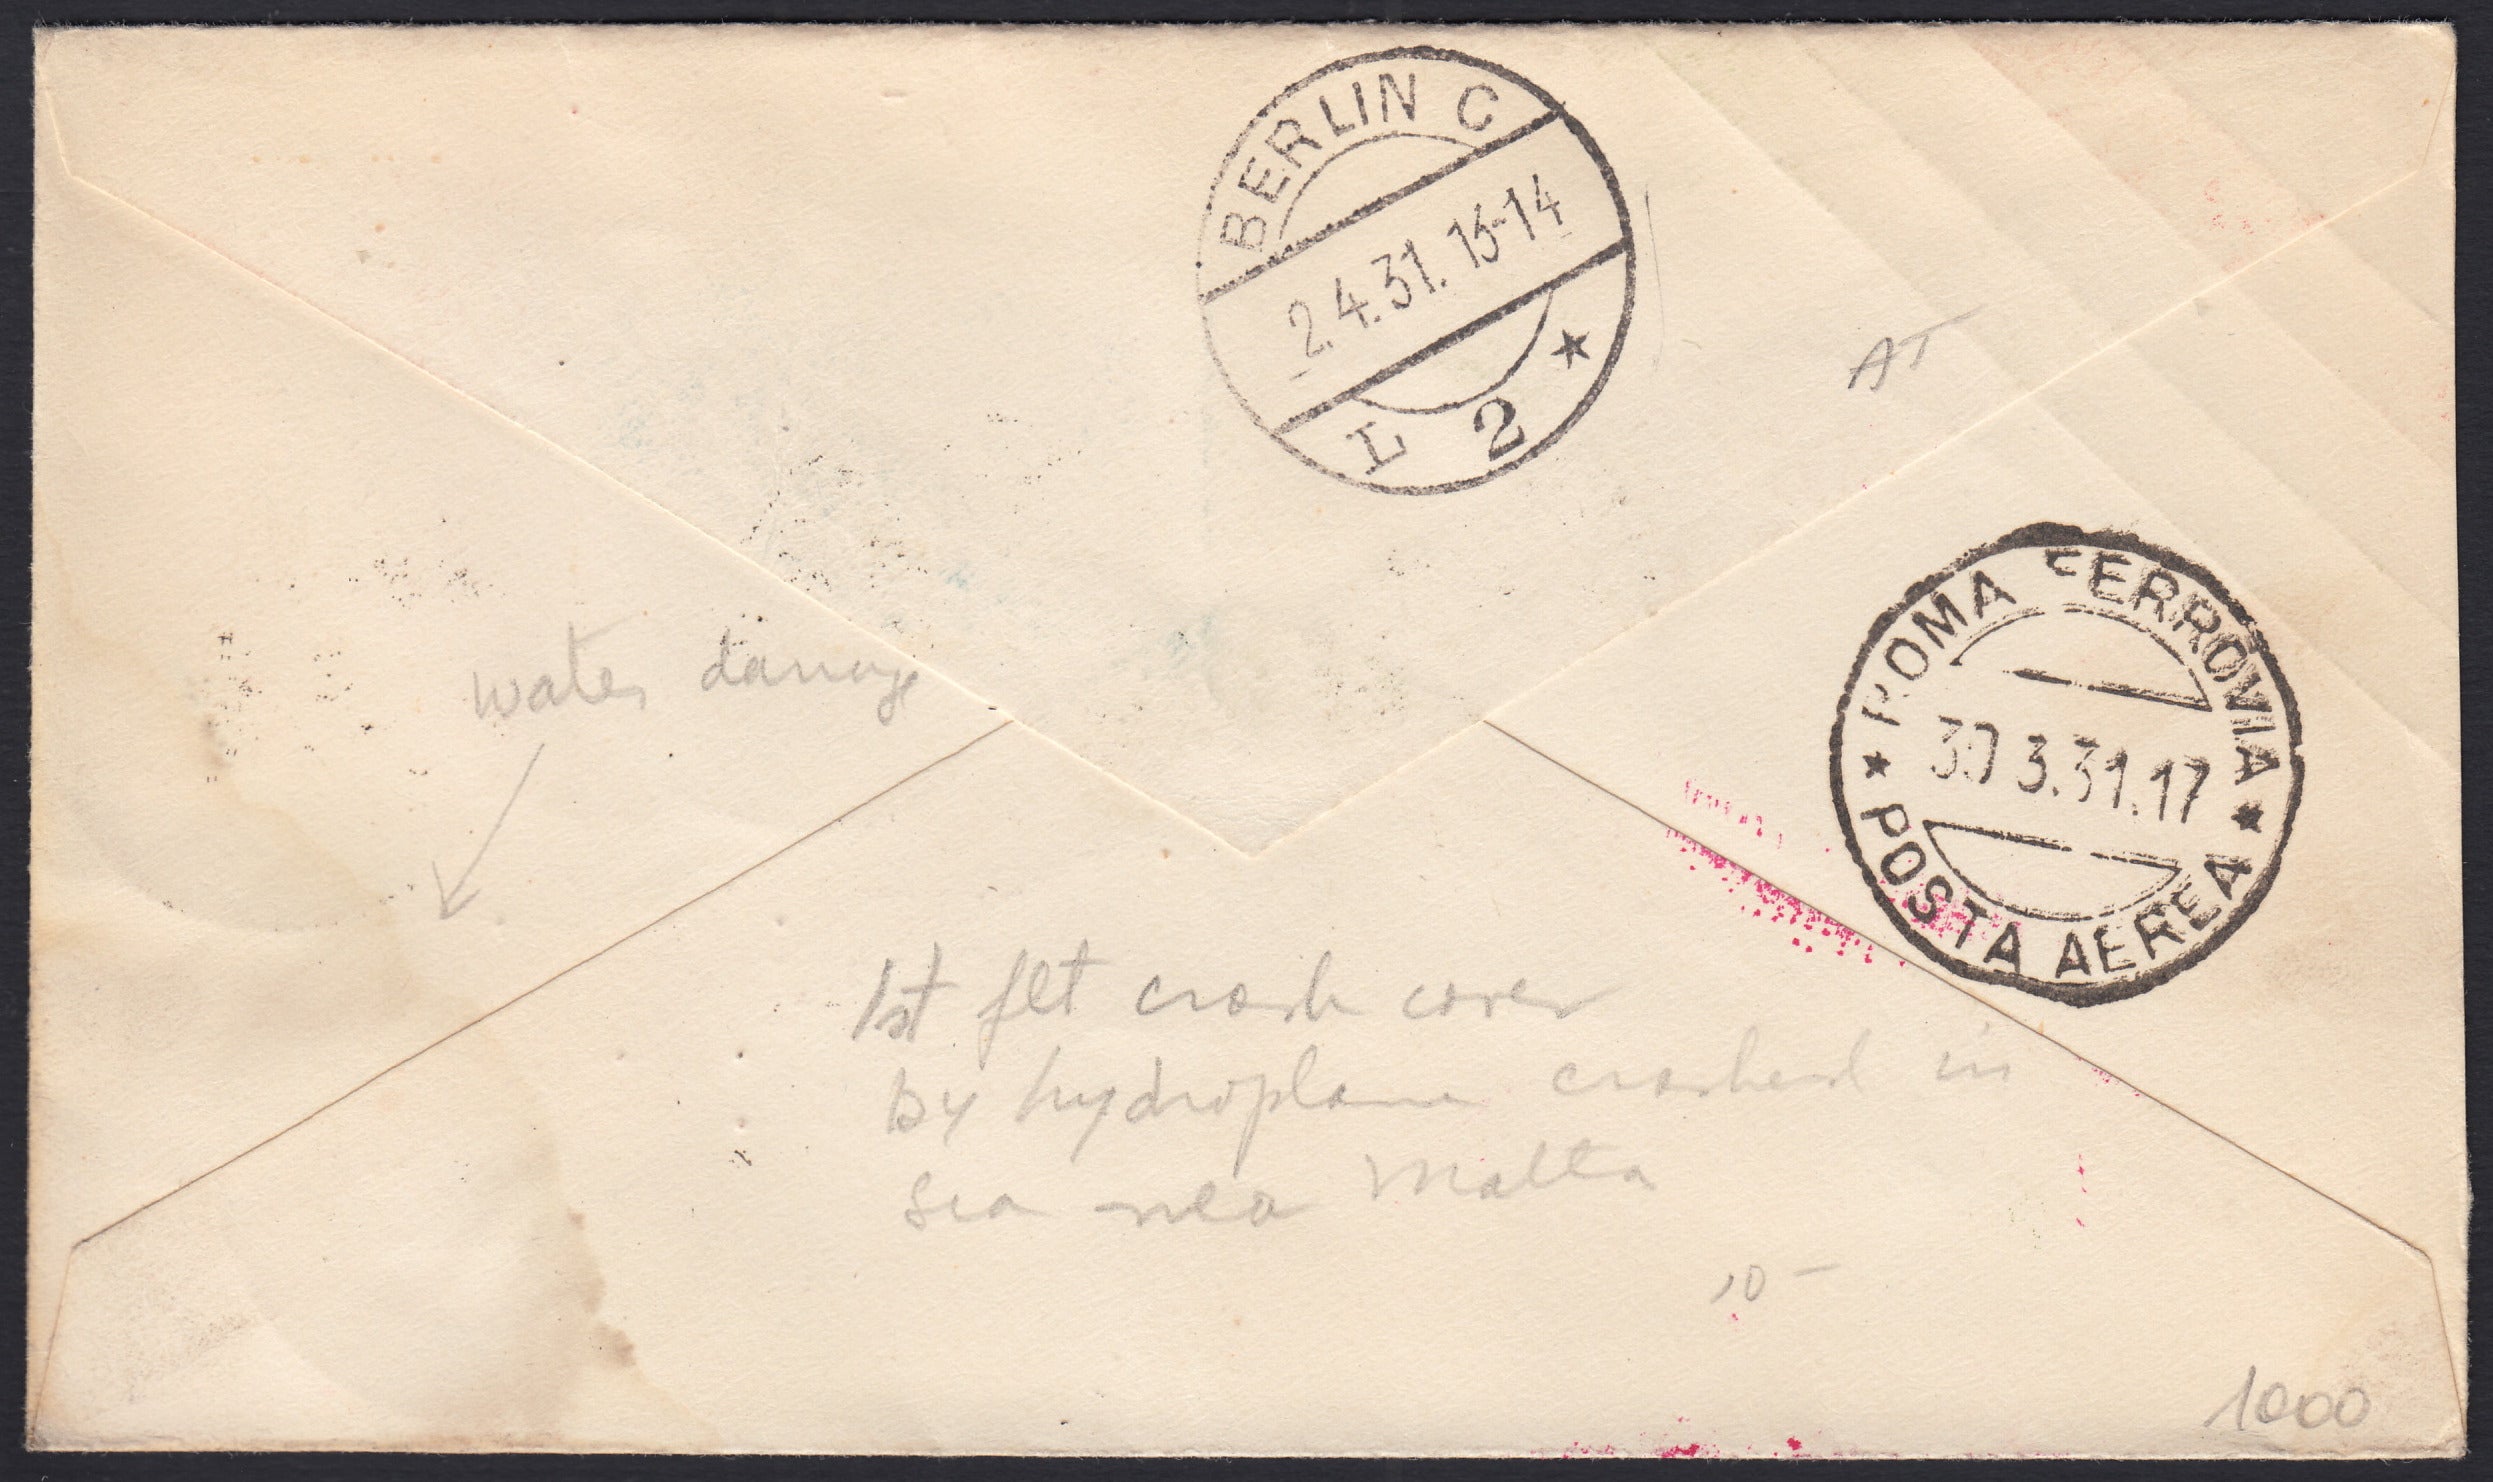 BERLIN C
2.4.31. 13-14
L 2 ★
AT
★ ROMA FERROVIA ★
30 3.31.17
POSTA AEREA
water damage
1st flt crash cover
by hydroplane crashed in
sea near Malta
10 -
1000